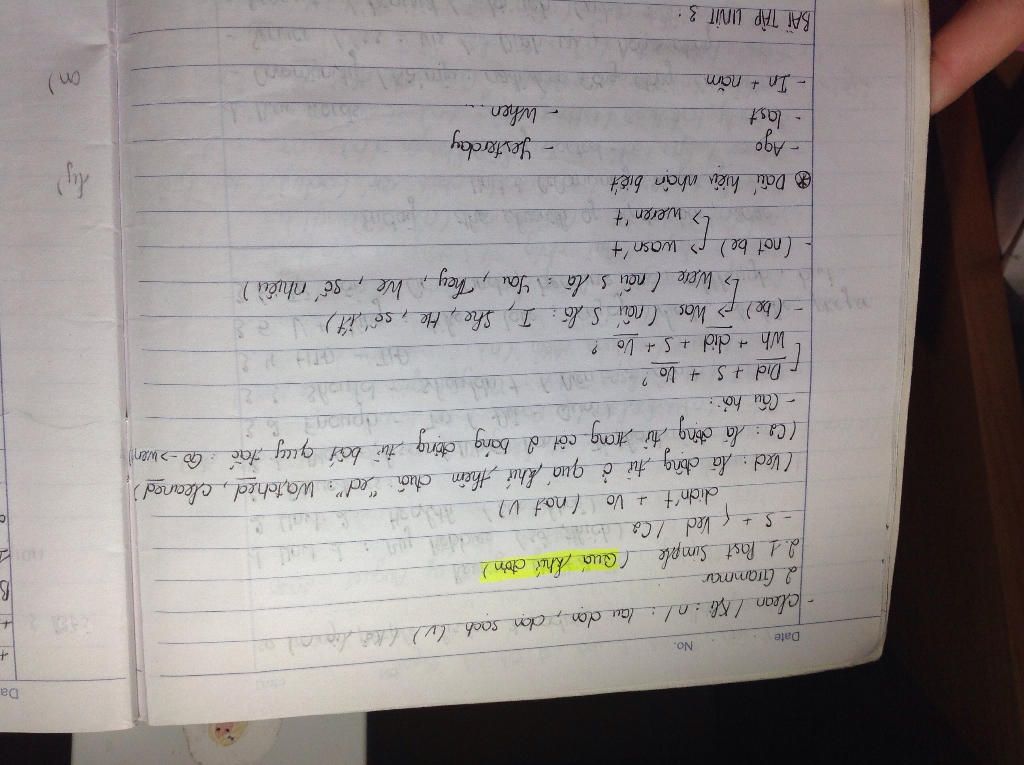 Date No.
- clean / Kli:n / : lau dọn, dọn sạch (v)
2 Grammar
2.1 Past Simple (Quá khứ đơn)
- S + { Ved / C2
didn't + Vo (not V)
(Ved: là động từ ở quá khứ thêm đuôi "ed": Watched, cleaned)
(C2: là động từ trong cột 2 bảng động từ bất quy tắc: Go -> went)
- Câu hỏi:
[ Did + S + Vo?
Wh + did + S + Vo?
- (be) -> Was (nếu S là: I, She, He, số ít)
-> Were (nếu S là: You, They, We, số nhiều)
- (not be) -> wasn't
-> weren't
* Dấu hiệu nhận biết
- Ago - Yesterday
- last - When ...
- In + năm
BÀI TẬP UNIT 3: